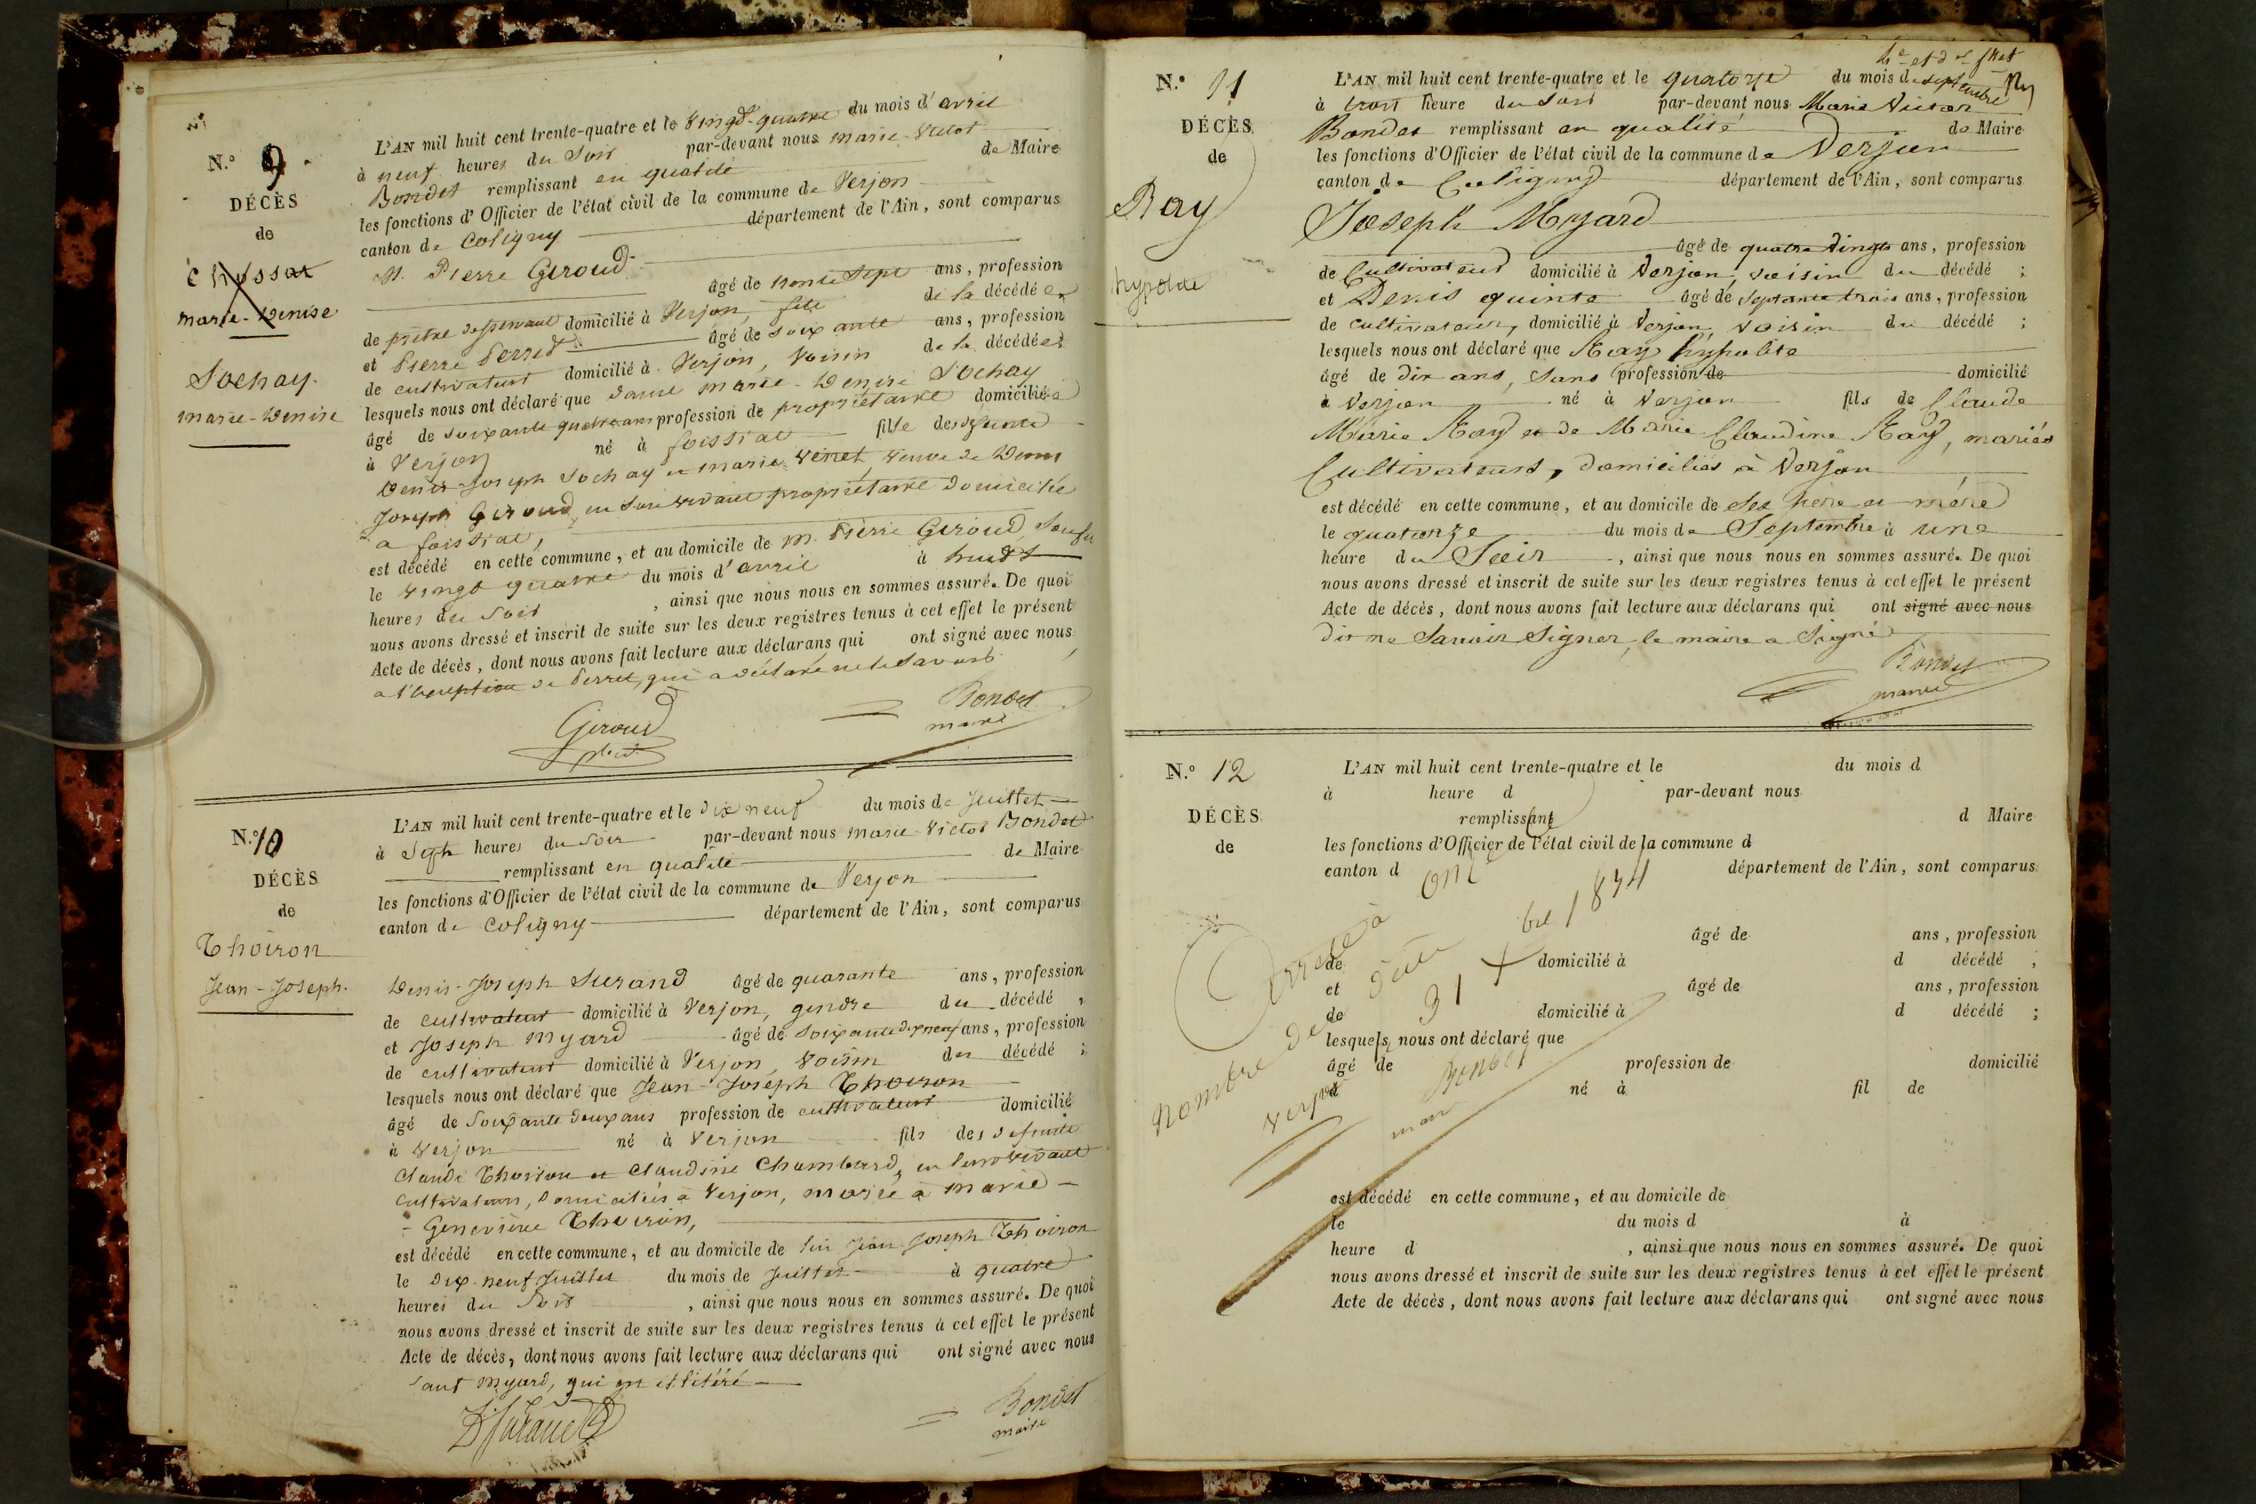 N.º 9
DÉCÈS
de
Chossat
marie-Denise
Sochay.
marie-Denise
L'AN mil huit cent trente-quatre et le vingt-quatre du mois d'avril
à neuf heures du soir par-devant nous marie-victor
Bondet remplissant en qualité de Maire
les fonctions d'Officier de l'état civil de la commune de Verjon
canton de Coligny département de l'Ain, sont comparus
M. Pierre Giroud
âgé de trente sept ans, profession
de prêtre desservant domicilié à Verjon, fils de la décédée
et Pierre Perret âgé de soixante ans, profession
de cultivateur domicilié à Verjon, voisin de la décédée
lesquels nous ont déclaré que dame marie-Denise Sochay
âgé de soixante quatre ans profession de propriétaire domiciliée
à Verjon né à foissiat fille des défunts
Denis-Joseph Sochay et marie Venet, veuve de Denis
Joseph Giroud, en son vivant propriétaire domicilié
a foissiat,
est décédé en cette commune, et au domicile de M. Pierre Giroud, son fils
le vingt quatre du mois d'avril à huit
heures du soir, ainsi que nous nous en sommes assuré. De quoi
nous avons dressé et inscrit de suite sur les deux registres tenus à cet effet le présent
Acte de décès, dont nous avons fait lecture aux déclarans qui ont signé avec nous
a l'exception de Perret, qui a déclaré ne le savoir
Giroud
Bondet
maire
N.º 10
DÉCÈS
de
Thoiron
Jean-Joseph.
L'AN mil huit cent trente-quatre et le dix neuf du mois de Juillet
à sept heures du soir par-devant nous marie-victor Bondet
remplissant en qualité de Maire
les fonctions d'Officier de l'état civil de la commune de Verjon
canton de Coligny département de l'Ain, sont comparus
Denis-Joseph Surand âgé de quarante ans, profession
de cultivateur domicilié à Verjon, gendre du décédé,
et Joseph Myard âgé de soixante dix neuf ans, profession
de cultivateur domicilié à Verjon, voisin du décédé;
lesquels nous ont déclaré que Jean-Joseph Thoiron
âgé de Soixante deux ans profession de cultivateur domicilié
à Verjon né à Verjon fils des défunts
Claude Thoiron et Claudine Chambard, en leur vivant
cultivateurs, domiciliés à Verjon, marié à marie-
-Geneviève Thoiron,
est décédé en cette commune, et au domicile de lui Jean-Joseph Thoiron
le dix-neuf Juillet du mois de Juillet à quatre
heures du soir, ainsi que nous nous en sommes assuré. De quoi
nous avons dressé et inscrit de suite sur les deux registres tenus à cet effet le présent
Acte de décès, dont nous avons fait lecture aux déclarans qui ont signé avec nous
sauf Myard, qui est illitéré
Bondet
maire
N.º 11
DÉCÈS
de
Ray
hypolite
L'AN mil huit cent trente-quatre et le quatorze du mois de septembre
à trois heure du soir par-devant nous Marie Victor
Bondet remplissant en qualité de Maire
les fonctions d'Officier de l'état civil de la commune de Verjon
canton de Coligny département de l'Ain, sont comparus
Joseph Myard
âgé de quatre vingts ans, profession
de Cultivateur domicilié à Verjon, voisin du décédé;
et Denis quinte âgé de septante trois ans, profession
de cultivateur, domicilié à Verjon, voisin du décédé;
lesquels nous ont déclaré que Ray hypolite
âgé de dix ans, sans profession de domicilié
à Verjon né à Verjon fils de Claude
Marie Ray et de Marie Claudine Ray, mariés
Cultivateurs, domiciliés à Verjon
est décédé en cette commune, et au domicile de ses père et mère
le quatorze du mois de Septembre à une
heure du Soir, ainsi que nous nous en sommes assuré. De quoi
nous avons dressé et inscrit de suite sur les deux registres tenus à cet effet le présent
Acte de décès, dont nous avons fait lecture aux déclarans qui ont signé avec nous
dit ne Savoir Signer, le maire a Signé
Bondet
maire
N.º 12
DÉCÈS
de
L'AN mil huit cent trente-quatre et le du mois d
à heure d par-devant nous
remplissant d Maire
les fonctions d'Officier de l'état civil de la commune d
canton d département de l'Ain, sont comparus
âgé de ans, profession
de domicilié à d décédé,
et âgé de ans, profession
de domicilié à d décédé;
lesquels nous ont déclaré que
âgé de profession de domicilié
à né à fil de
est décédé en cette commune, et au domicile de
le du mois d à
heure d, ainsi que nous nous en sommes assuré. De quoi
nous avons dressé et inscrit de suite sur les deux registres tenus à cet effet le présent
Acte de décès, dont nous avons fait lecture aux déclarans qui ont signé avec nous
Arrêté à onze
nombre de
Verjon 31 Xbre 1834
Bondet
maire